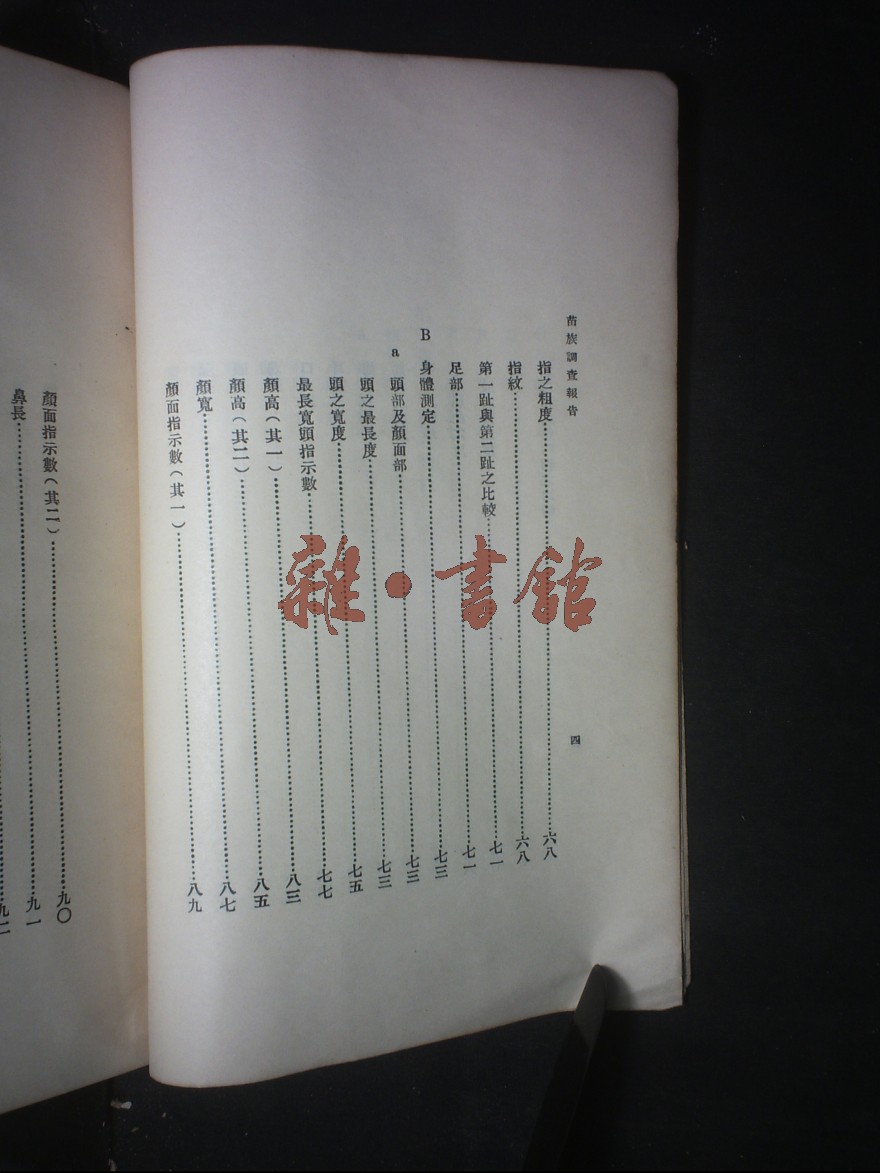 苗族調查報告
四
指之粗度……六八
指紋……六八
第一趾與第二趾之比較……七一
足部……七一
B 身體測定……七三
a 頭部及顏面部……七三
頭之最長度……七三
頭之寬度……七五
最長寬頭指示數……七七
顏高(其一)……八三
顏高(其二)……八五
顏寬……八七
顏面指示數(其一)……八九
顏面指示數(其二)……九〇
鼻長……九一
九二
雜·書館